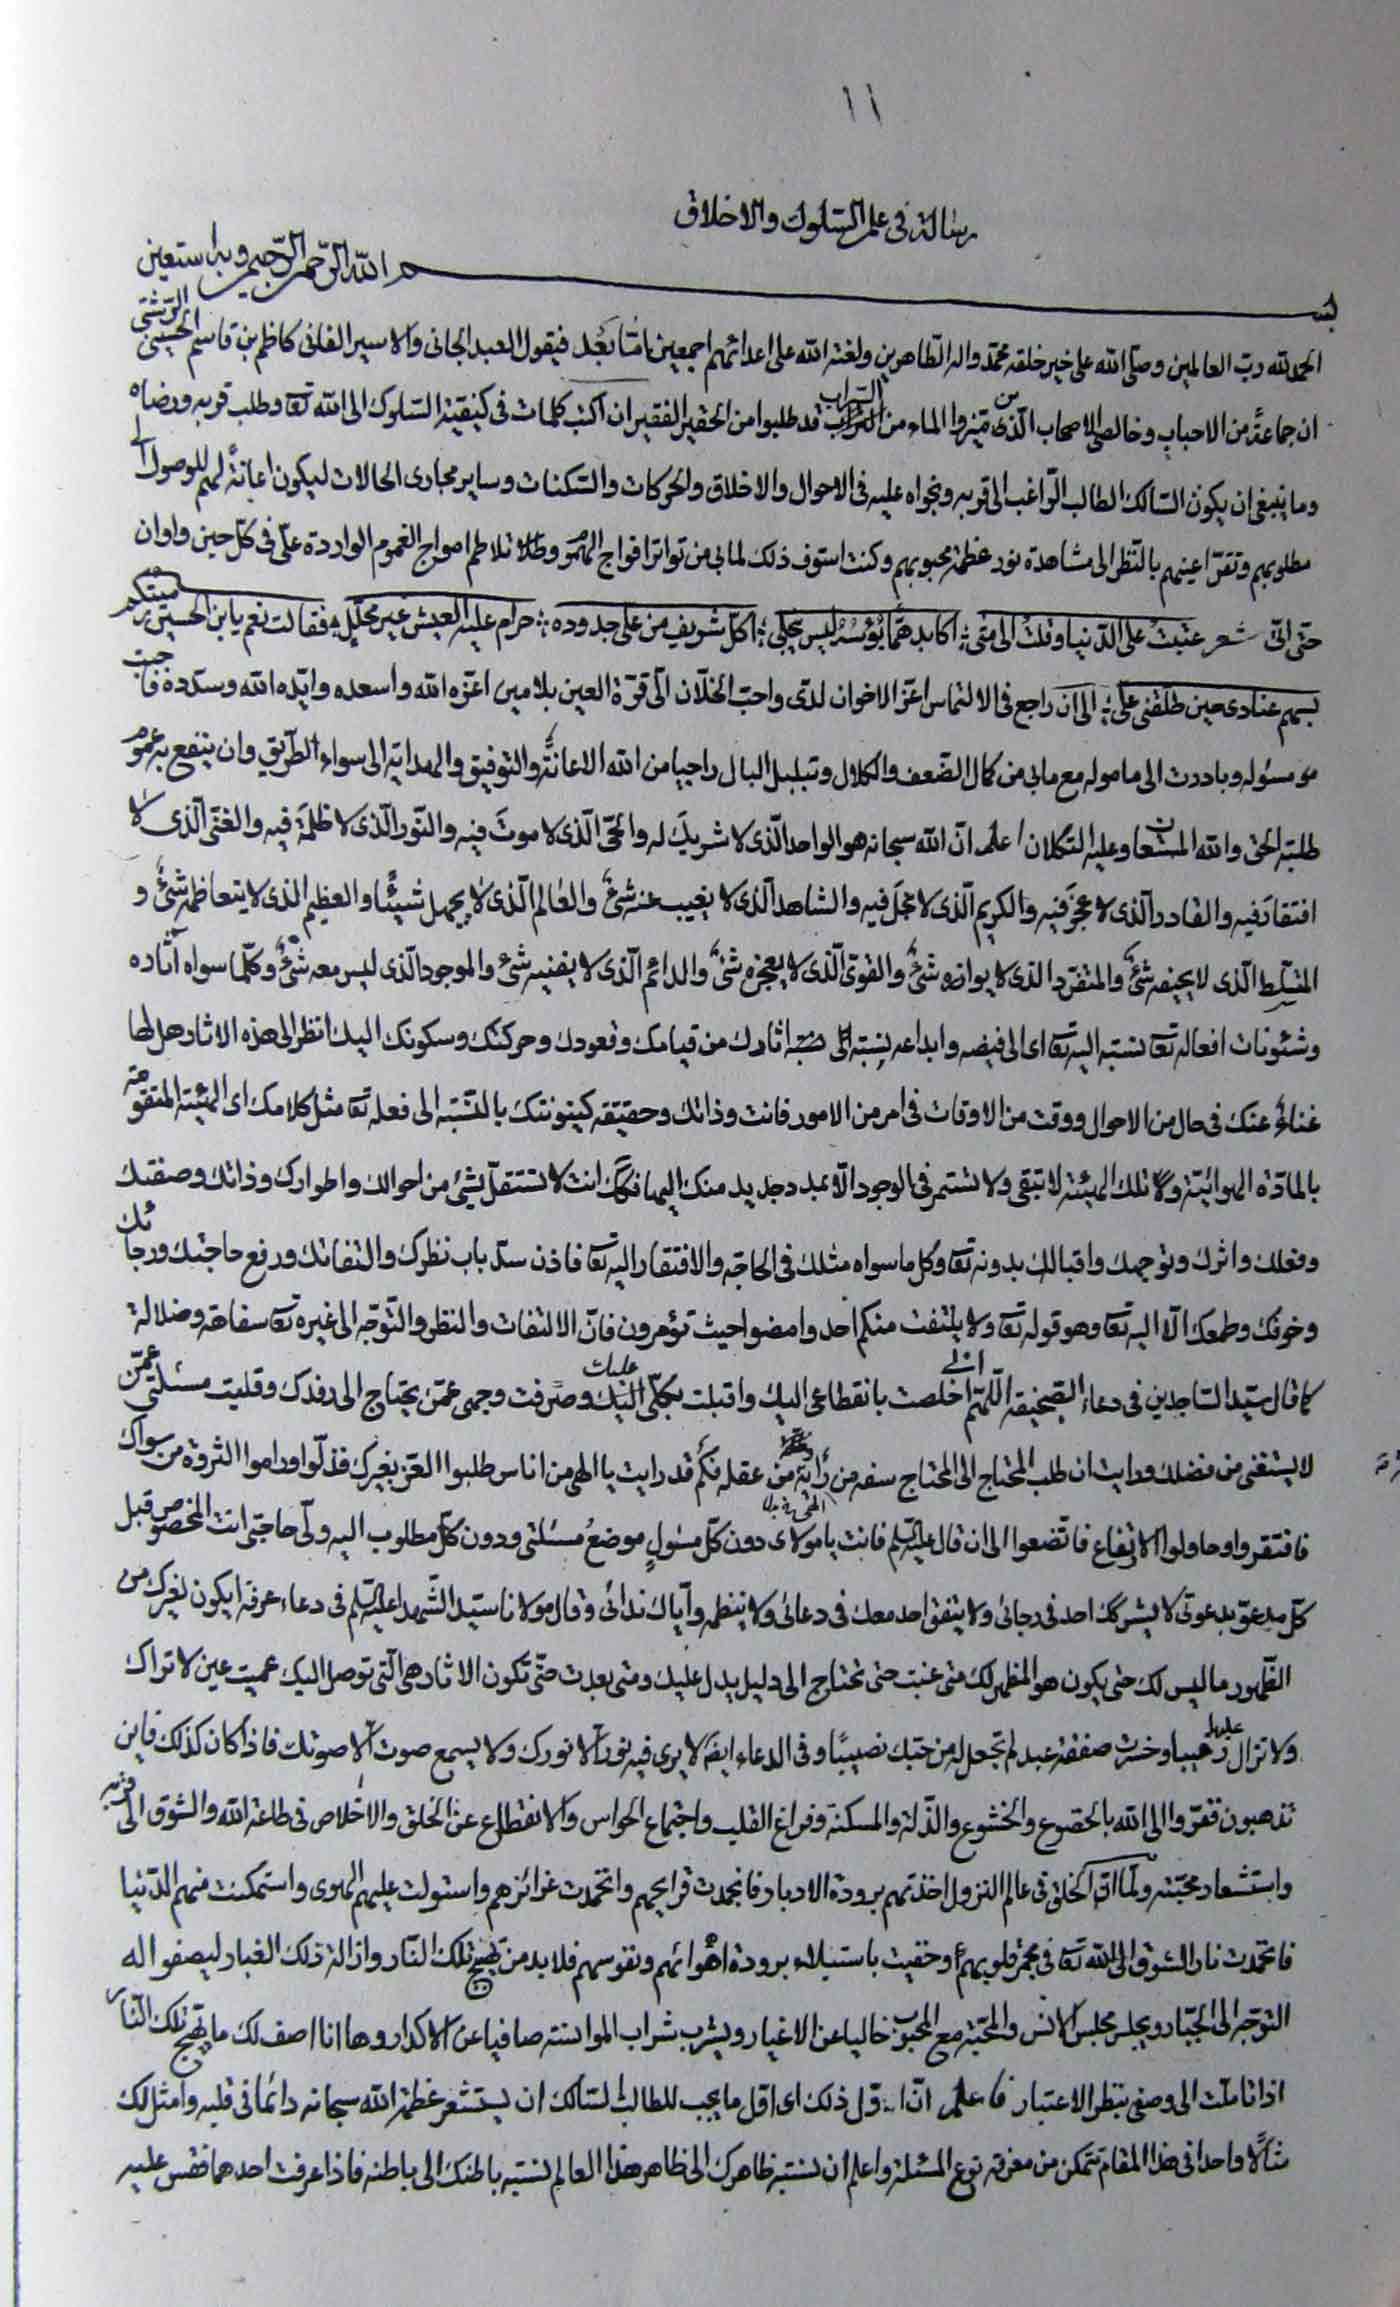 ١١
رسالة فى علم السلوك والاخلاق
بسم الله الرحمن الرحيم وبه استعين
الحمد لله رب العالمين وصلى الله على خير خلقه محمد واله الطاهرين ولعنة الله على اعدائهم اجمعين اما بعد فيقول العبد الجانى والاسير الفانى كاظم بن قاسم الحسينى الرشتى
ان جماعة من الاحباب وخالصى الاصحاب الذين ميزوا الماء من السراب قد طلبوا من الحقير الفقير ان اكتب كلمات فى كيفية السلوك الى الله تعا وطلب قربه ورضاه
وما ينبغى ان يكون السالك الطالب الراغب الى قربه ونجواه عليه فى الاحوال والاخلاق والحركات والسكنات وساير مجارى الحالات ليكون اعانة لهم للوصول الى
مطلوبهم وتقر اعينهم بالنظر الى مشاهدة نور عظمة محبوبهم وكنت اسوف ذلك لمابى من تواتر افواج الهموم وتلاطم امواج الغموم الواردة على فى كل حين واوان
حتى انى شعر عتبت على الدنيا وقلت الى متى اكابد هما بؤسه ليس ينجلى اكل شريف من على جدوده حرام عليه العيش غير محلل فقالت نعم يابن الحسين رميتكم
بسهم عنادى حين طلقنى على الى ان راجع فى الالتماس اعز الاخوان لدى واحب الخلان الى قرة العين بلا مين اعزه الله واسعده وايده الله وسدده فاجبت
مسئوله وبادرت الى ماموله مع مابى من كمال الضعف والكلال وتبلبل البال راجيا من الله الاعانة والتوفيق والهداية الى سواء الطريق وان ينفع به عموم
طلبة الحق والله المستعان وعليه التكلان اعلم ان الله سبحانه هو الواحد الذى لا شريك له والحى الذى لا موت فيه والنور الذى لا ظلمة فيه والغنى الذى لا
افتقار فيه والقادر الذى لا عجز فيه والكريم الذى لا بخل فيه والشاهد الذى لا يغيب عنه شئ والعالم الذى لا يجهل شيئا والعظيم الذى لا يتعاظمه شئ و
المتسلط الذى لا يخيفه شئ والمتفرد الذى لا يوازه شئ والقوى الذى لا يعجزه شئ والدائم الذى لا يفنيه شئ والموجود الذى ليس معه شئ وكلما سواه آثاره
وشئونات افعاله تعا نسبته اليه تعا اى الى فيضه وابداعه نسبة اثارك من قيامك وقعودك وحركتك وسكونك اليك انظر الى هذه الاثار هل لها
غناء عنك فى حال من الاحوال ووقت من الاوقات فى امر من الامور فانت وذاتك وحقيقة كينونتك بالنسبة الى فعله تعا مثل كلامك اى الهيئة المتقومة
بالمادة الهوائية وكما تلك الهيئة لا تبقى ولا تستمر فى الوجود الا بمدد جديد منك اليها فكذلك انت لا تستقل بشئ من احوالك واطوارك وذاتك وصفتك
وفعلك واثرك وتوجهك واقبالك بدونه تعا وكل ما سواه مثلك فى الحاجة والافتقار اليه تعا فاذن سد باب نظرك والتفاتك ورفع حاجتك ورجائك
وخوفك وطمعك الا اليه تعا وهو قوله تعا ولا يلتفت منكم احد وامضوا حيث تؤمرون فان الالتفات والنظر والتوجه الى غيره تعا سفاهة وضلالة
كما قال سيد الساجدين فى دعاء الصحيفة اللهم انى اخلصت بانقطاعى اليك واقبلت بكلى عليك وصرفت وجهى عمن يحتاج الى رفدك وقلبت مسئلتى عمن
لا يستغنى من فضلك ورايت ان طلب المحتاج الى المحتاج سفه من رأيه وضلة من عقله فكم قد رايت يا الهى من اناس طلبوا العز بغيرك فذلوا وراموا الثروة من سواك
فافتقروا وحاولوا الارتفاع فاتضعوا الى ان قال عليه السلم فانت يا مولاى دون كل مسئول موضع مسئلتى ودون كل مطلوب اليه ولى حاجتى انت المخصوص قبل
كل مدعو بدعوتى لا يشركك احد فى رجائى ولا يتفق احد معك فى دعائى ولا ينظمه واياك ندائى وقال مولانا سيد الشهداء عليه السلم فى دعاء عرفة ايكون لغيرك من
الظهور ما ليس لك حتى يكون هو المظهر لك متى غبت حتى تحتاج الى دليل يدل عليك ومتى بعدت حتى تكون الاثار هى التى توصل اليك عميت عين لا تراك
ولا تزال عليها رقيبا وخسرت صفقة عبد لم تجعل له من حبك نصيبا وفى الدعاء ايضا لا يرى فيه نور الا نورك ولا يسمع صوت الا صوتك فاذا كان كذلك فاين
تذهبون ففروا الى الله بالخضوع والخشوع والذلة والمسكنة وفراغ القلب واجتماع الحواس والانقطاع عن الخلق والاخلاص فى طاعة الله والشوق الى قربه
واستشعار محبته ولما ان الخلق فى عالم النزول اخذتهم برودة الادبار فانجمدت قرايحهم وانخمدت غرائزهم واستولت عليهم الهوى واستمكنت منهم الدنيا
فانخمدت نار الشوق الى الله تعا فى مجمر قلوبهم وخفيت باستيلاء برودة اهوائهم ونفوسهم فلابد من تهييج تلك النار وازالة ذلك الغبار ليصفو اله
التوجه الى الجبار ويجلس مجلس الانس والمحبة مع المحبوب خاليا عن الاغيار ويشرب شراب الموانسة صافيا عن الاكدار وها انا اصف لك ما يهيج تلك النار
اذا تاملت الى وصفى بنظر الاعتبار فاعلم ان اول ذلك اى اقل ما يجب للطالب السالك ان يستشعر عظمة الله سبحانه دائما فى قلبه وامثل لك
مثالا واحدا فى هذا المقام تتمكن من معرفة نوع المسئلة واعلم ان نسبة ظاهرك الى ظاهر هذا العالم نسبة باطنك الى باطنه فاذا عرفت احدهما فقس عليه